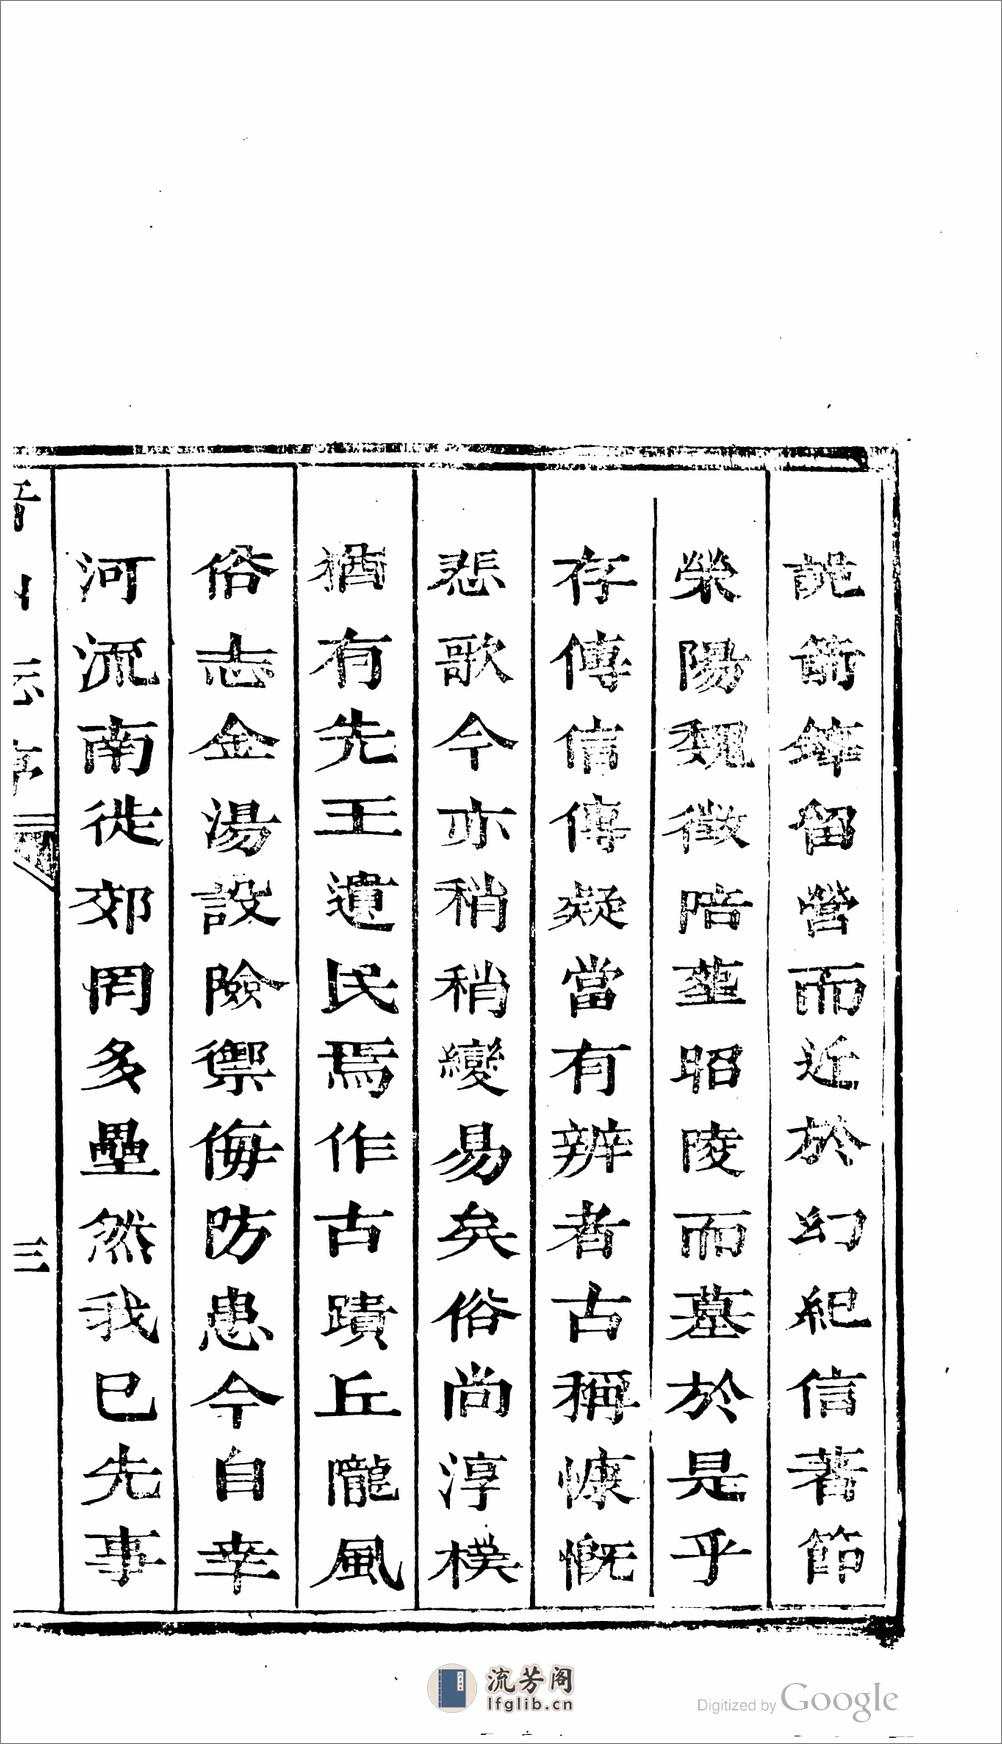 詭箭鋒留營而近於幻紀信著節
滎陽魏徵陪葬昭陵而墓於是乎
存傳信傳疑當有辨者古稱慷慨
悲歌今亦稍稍變易矣俗尚淳樸
猶有先王遺民焉作古蹟丘隴風
俗志金湯設險禦侮防患今自幸
河流南徙郊罔多壘然我已先事
志序
三
流芳阁
lfglib.cn
Digitized by Google